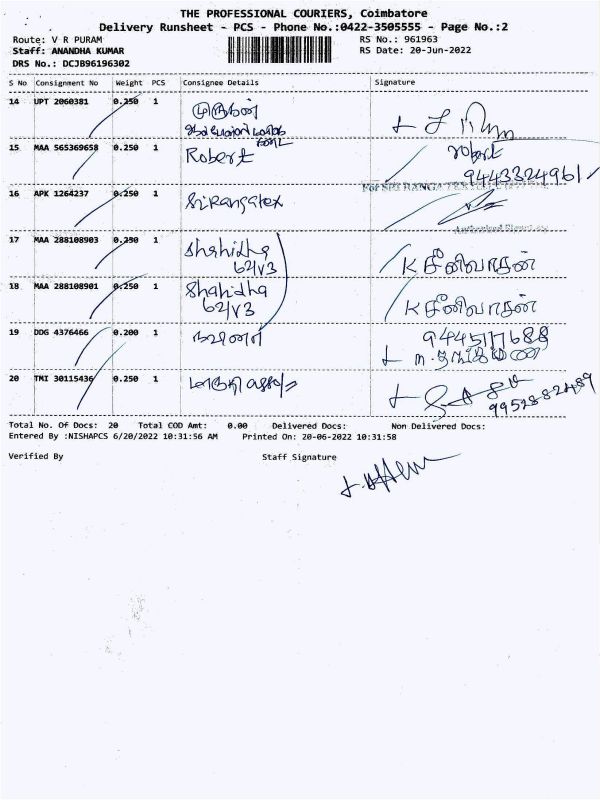 THE PROFESSIONAL COURIERS, Coimbatore
Delivery Runsheet - PCS - Phone No.:0422-3505555 - Page No.:2
Route: V R PURAM RS No.: 961963
Staff: ANANDHA KUMAR RS Date: 20-Jun-2022
DRS No.: DCJB96196302
S No Consignment No Weight PCS Consignee Details Signature
14 UPT 2060381 0.250 1 முருகன்
15 MAA 565369658 0.250 1 Robert robert
9443324961
16 APK 1264237 0.250 1 Srirangatex
For SRI RANGA
17 MAA 288108903 0.250 1 Shahidha K சீனிவாசன்
62/V3
18 MAA 288108901 0.250 1 Shahidha K சீனிவாசன்
62/V3
19 DDG 4376466 0.200 1 நவீனா
20 TMI 30115436 0.250 1
Total No. Of Docs: 20 Total COD Amt: 0.00 Delivered Docs: Non Delivered Docs:
Entered By :NISHAPCS 6/20/2022 10:31:56 AM Printed On: 20-06-2022 10:31:58
Verified By Staff Signature